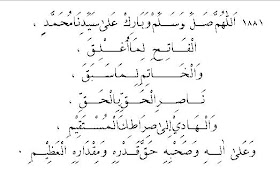 ١٨٨١ اَللّٰهُمَّ صَلِّ وَسَلِّمْ وَبَارِكْ عَلىٰ سَيِّدِنَا مُحَمَّدٍ ،
اَلْفَاتِحِ لِمَا أُغْلِقَ ،
وَالْخَاتِمِ لِمَا سَبَقَ ،
نَاصِرِ الْحَقِّ بِالْحَقِّ ،
وَالْهَادِيْ إِلىٰ صِرَاطِكَ الْمُسْتَقِيْمِ ،
وَعَلىٰ اٰلِهِ وَصَحْبِهِ حَقَّ قَدْرِهِ وَمِقْدَارِهِ الْعَظِيْمِ .